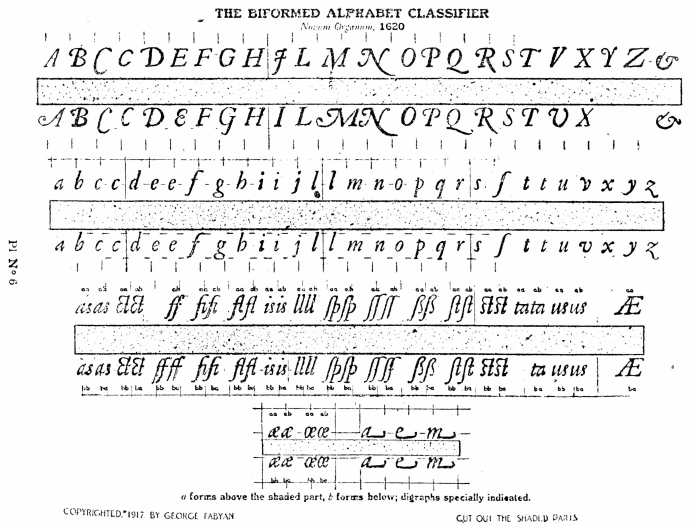 THE BIFORMED ALPHABET CLASSIFIER
Novum Organum, 1620
A B C C D E F G H I L M N O P Q R S T V X Y Z &
A B C C D E F G H I L M N O P Q R S T U X &
a b c c d e e f g h i i j l l m n o p q r s ſ t t u v x y z
a b c c d e e f g h i i j l l m n o p q r s ſ t t u v x y z
Pl Nº 6
as as ct ct ff fi fi fl fl is is ll ll ſp ſp ſſ ſſ ſß ſß ſt ſt st st ta ta us us Æ
as as ct ct ff ff fi fi fl fl is is ll ll ſp ſp ſſ ſſ ſß ſß ſt ſt st st ta us us Æ
aa ab aa ab
æ æ œ œ a e m
æ æ œ œ a e m
a forms above the shaded part, b forms below; digraphs specially indicated.
COPYRIGHTED, 1917 BY GEORGE FABYAN
CUT OUT THE SHADED PARTS